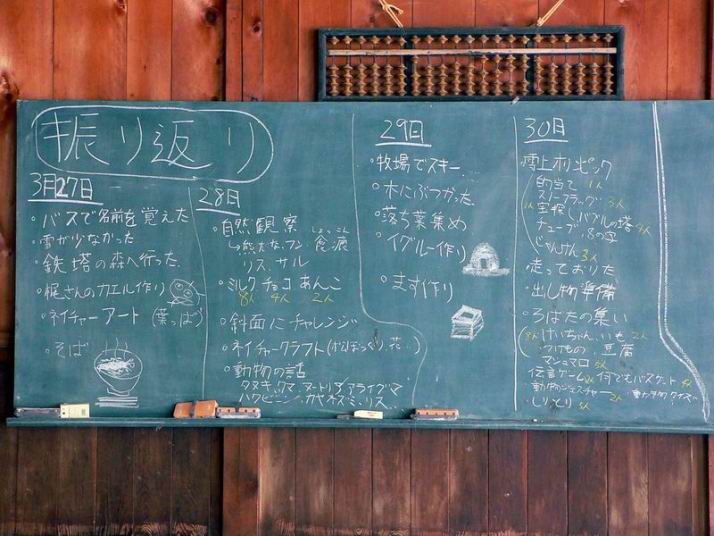 振り返り
3月27日
・バスで名前を覚えた
・雪が少なかった
・鉄塔の森へ行った
・梶さんのカエル作り
・ネイチャーアート (葉っぱ)
・そば
28日
・自然観察
↳熊, 大な, フン 食痕 しょっこん
リス サル
・ミルク チョコ あんこ
8人 4人 2人
・斜面にチャレンジ
・ネイチャークラフト(松ぼっくり, 花…)
・動物の話
タヌキ, クマ, ヌートリア, アライグマ
ハクビシン, カヤネズミ, リス
29日
・牧場でスキー
・木にぶつかった
・落ち葉集め
・イグルー作り
・ます作り
30日
・雪上オリンピック
的当て 1人
スノーフラッグ 3人
宝探し バブルの塔 4人
チューブ 8の字
じゃんけん 3人
・走っておりた
・出し物準備
・ろばたの集い
けいちゃん, いも 2人
つけもの, 豆腐
マシュマロ 5人
伝言ゲーム 何でもバスケット
動物ジェスチャー 2人 動物クイズ
・しりとり 5人